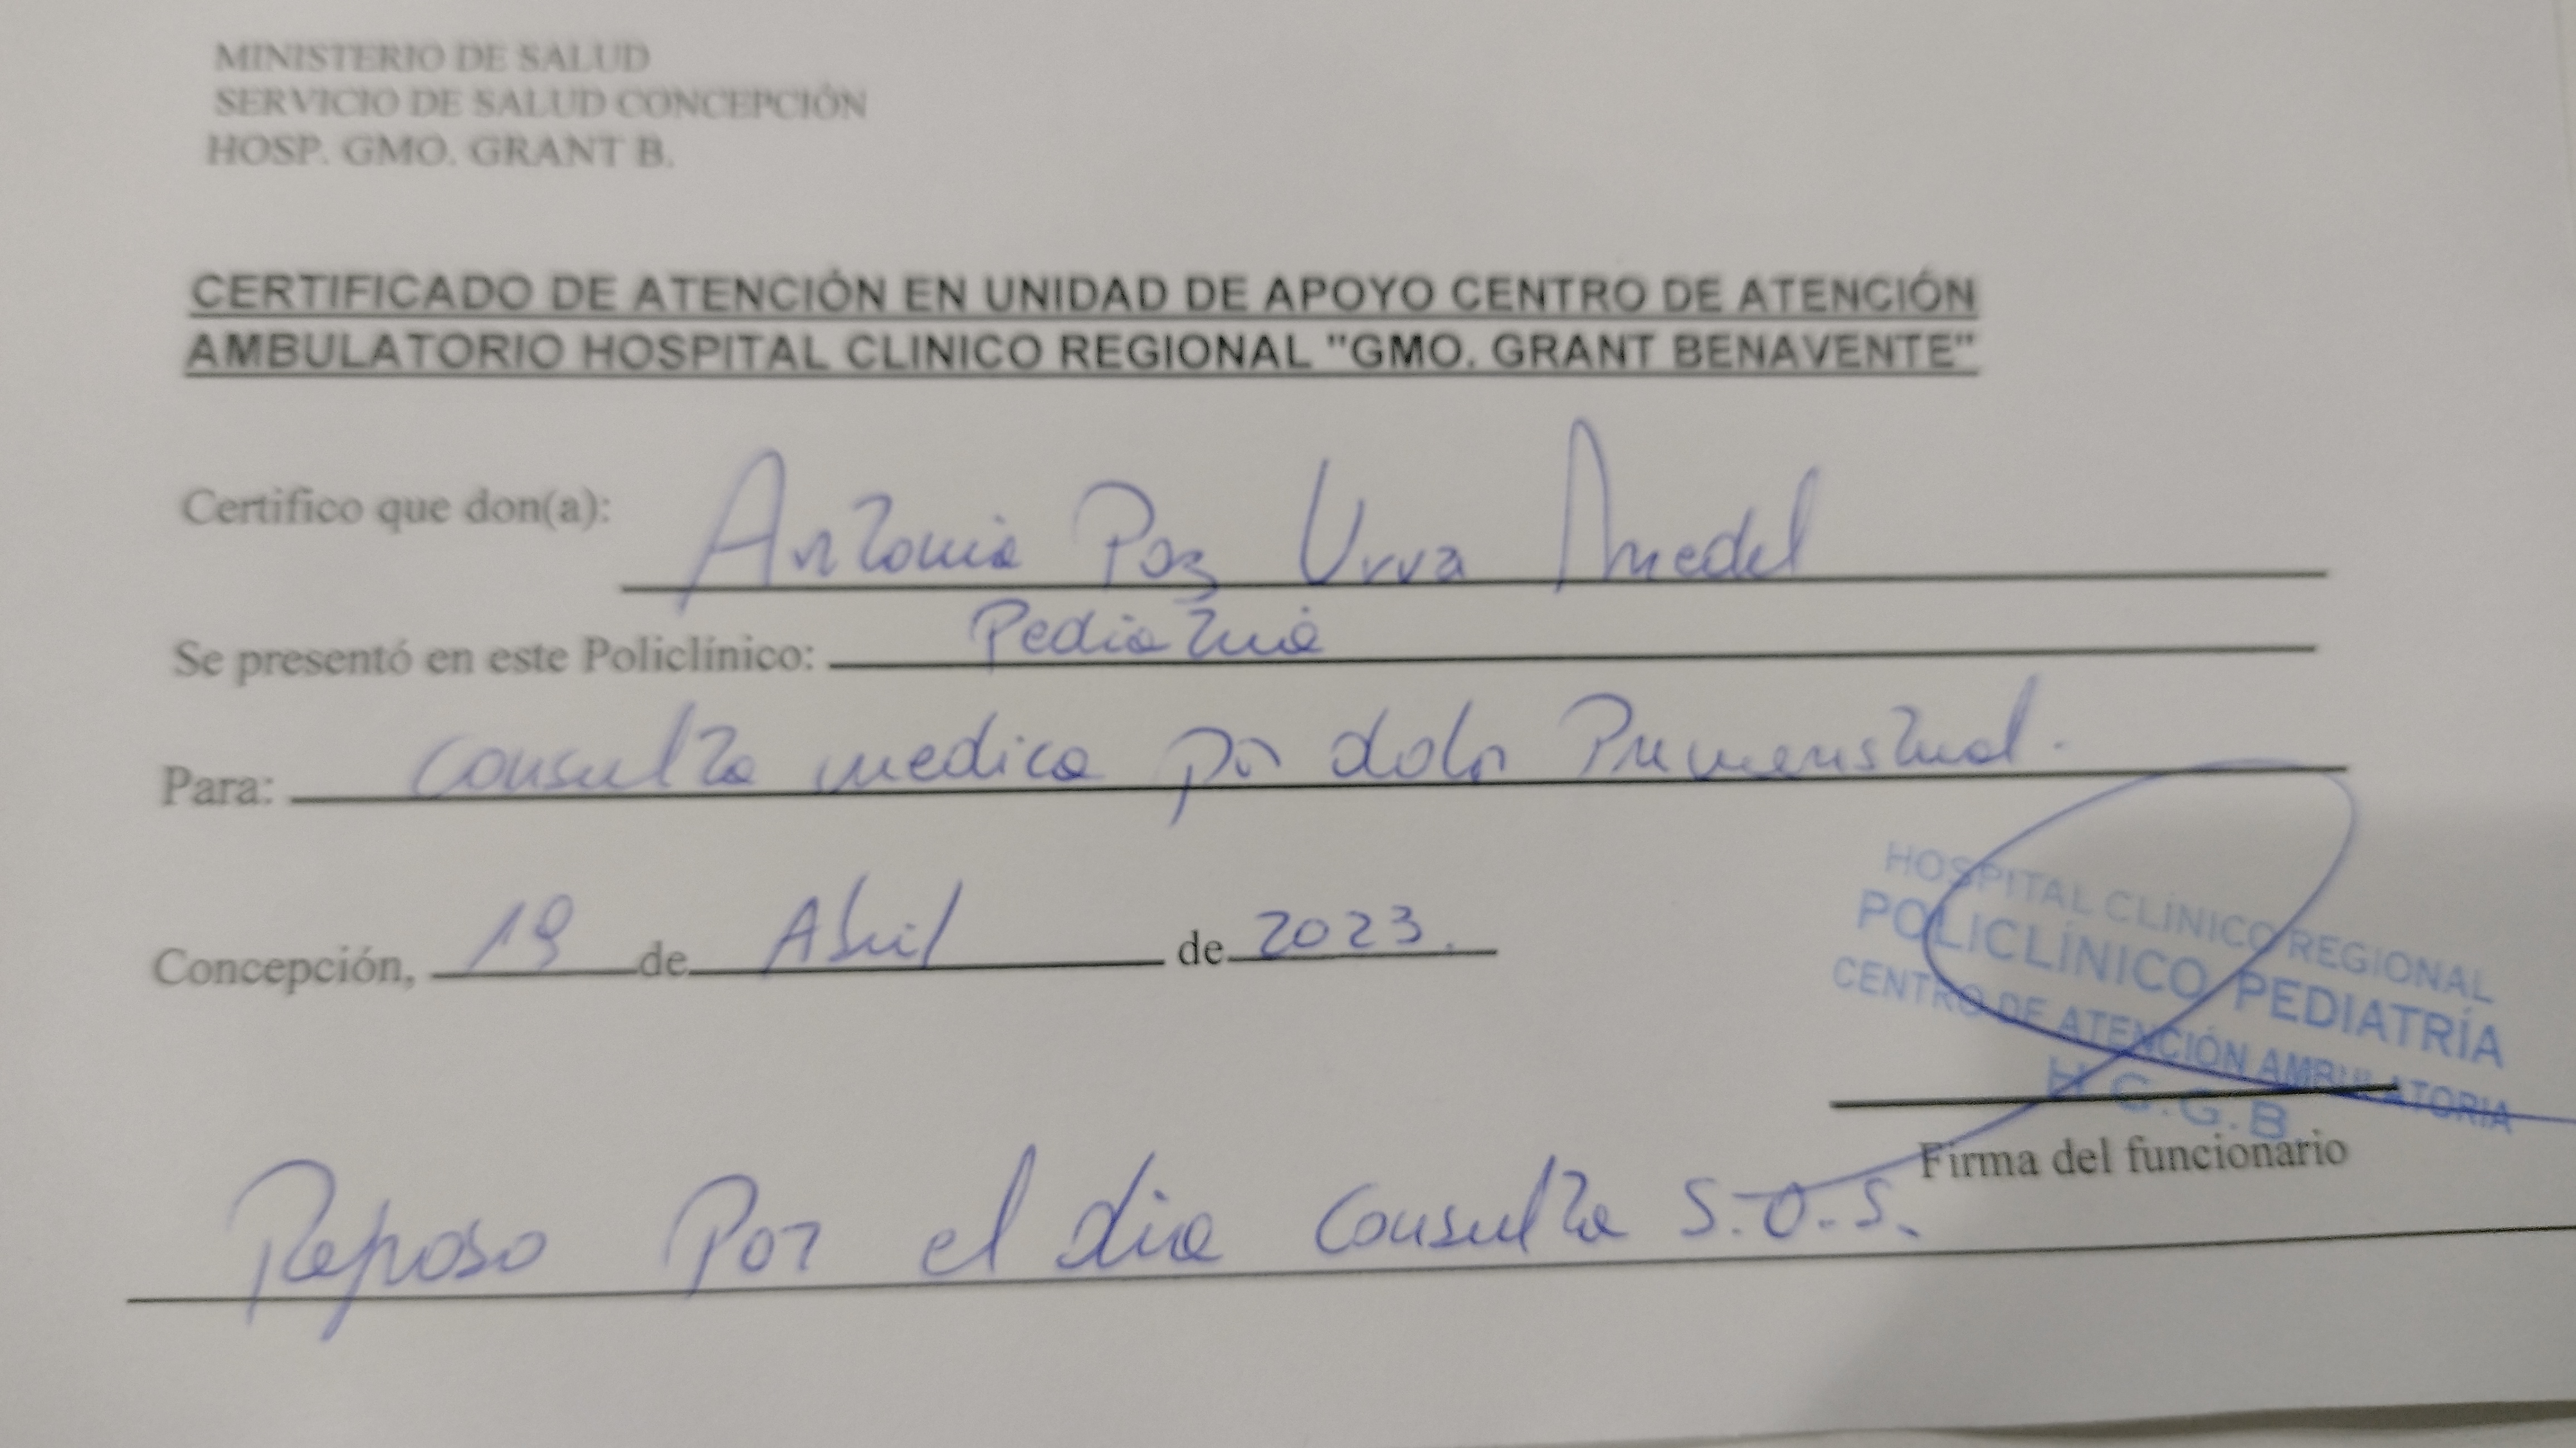 MINISTERIO DE SALUD
SERVICIO DE SALUD CONCEPCIÓN
HOSP. GMO. GRANT B.
CERTIFICADO DE ATENCIÓN EN UNIDAD DE APOYO CENTRO DE ATENCIÓN
AMBULATORIO HOSPITAL CLINICO REGIONAL "GMO. GRANT BENAVENTE"
Certifico que don(a): Antonia Paz Urra Amedel
Se presentó en este Policlínico: Pediatria
Para: Consulta medica por dolor Premenstrual.
Concepción, 19 de Abril de 2023.
HOSPITAL CLÍNICO REGIONAL
POLICLÍNICO PEDIATRÍA
CENTRO DE ATENCIÓN AMBULATORIA
H.C.G.B.
Firma del funcionario
Reposo Por el dia Consulta S.O.S.